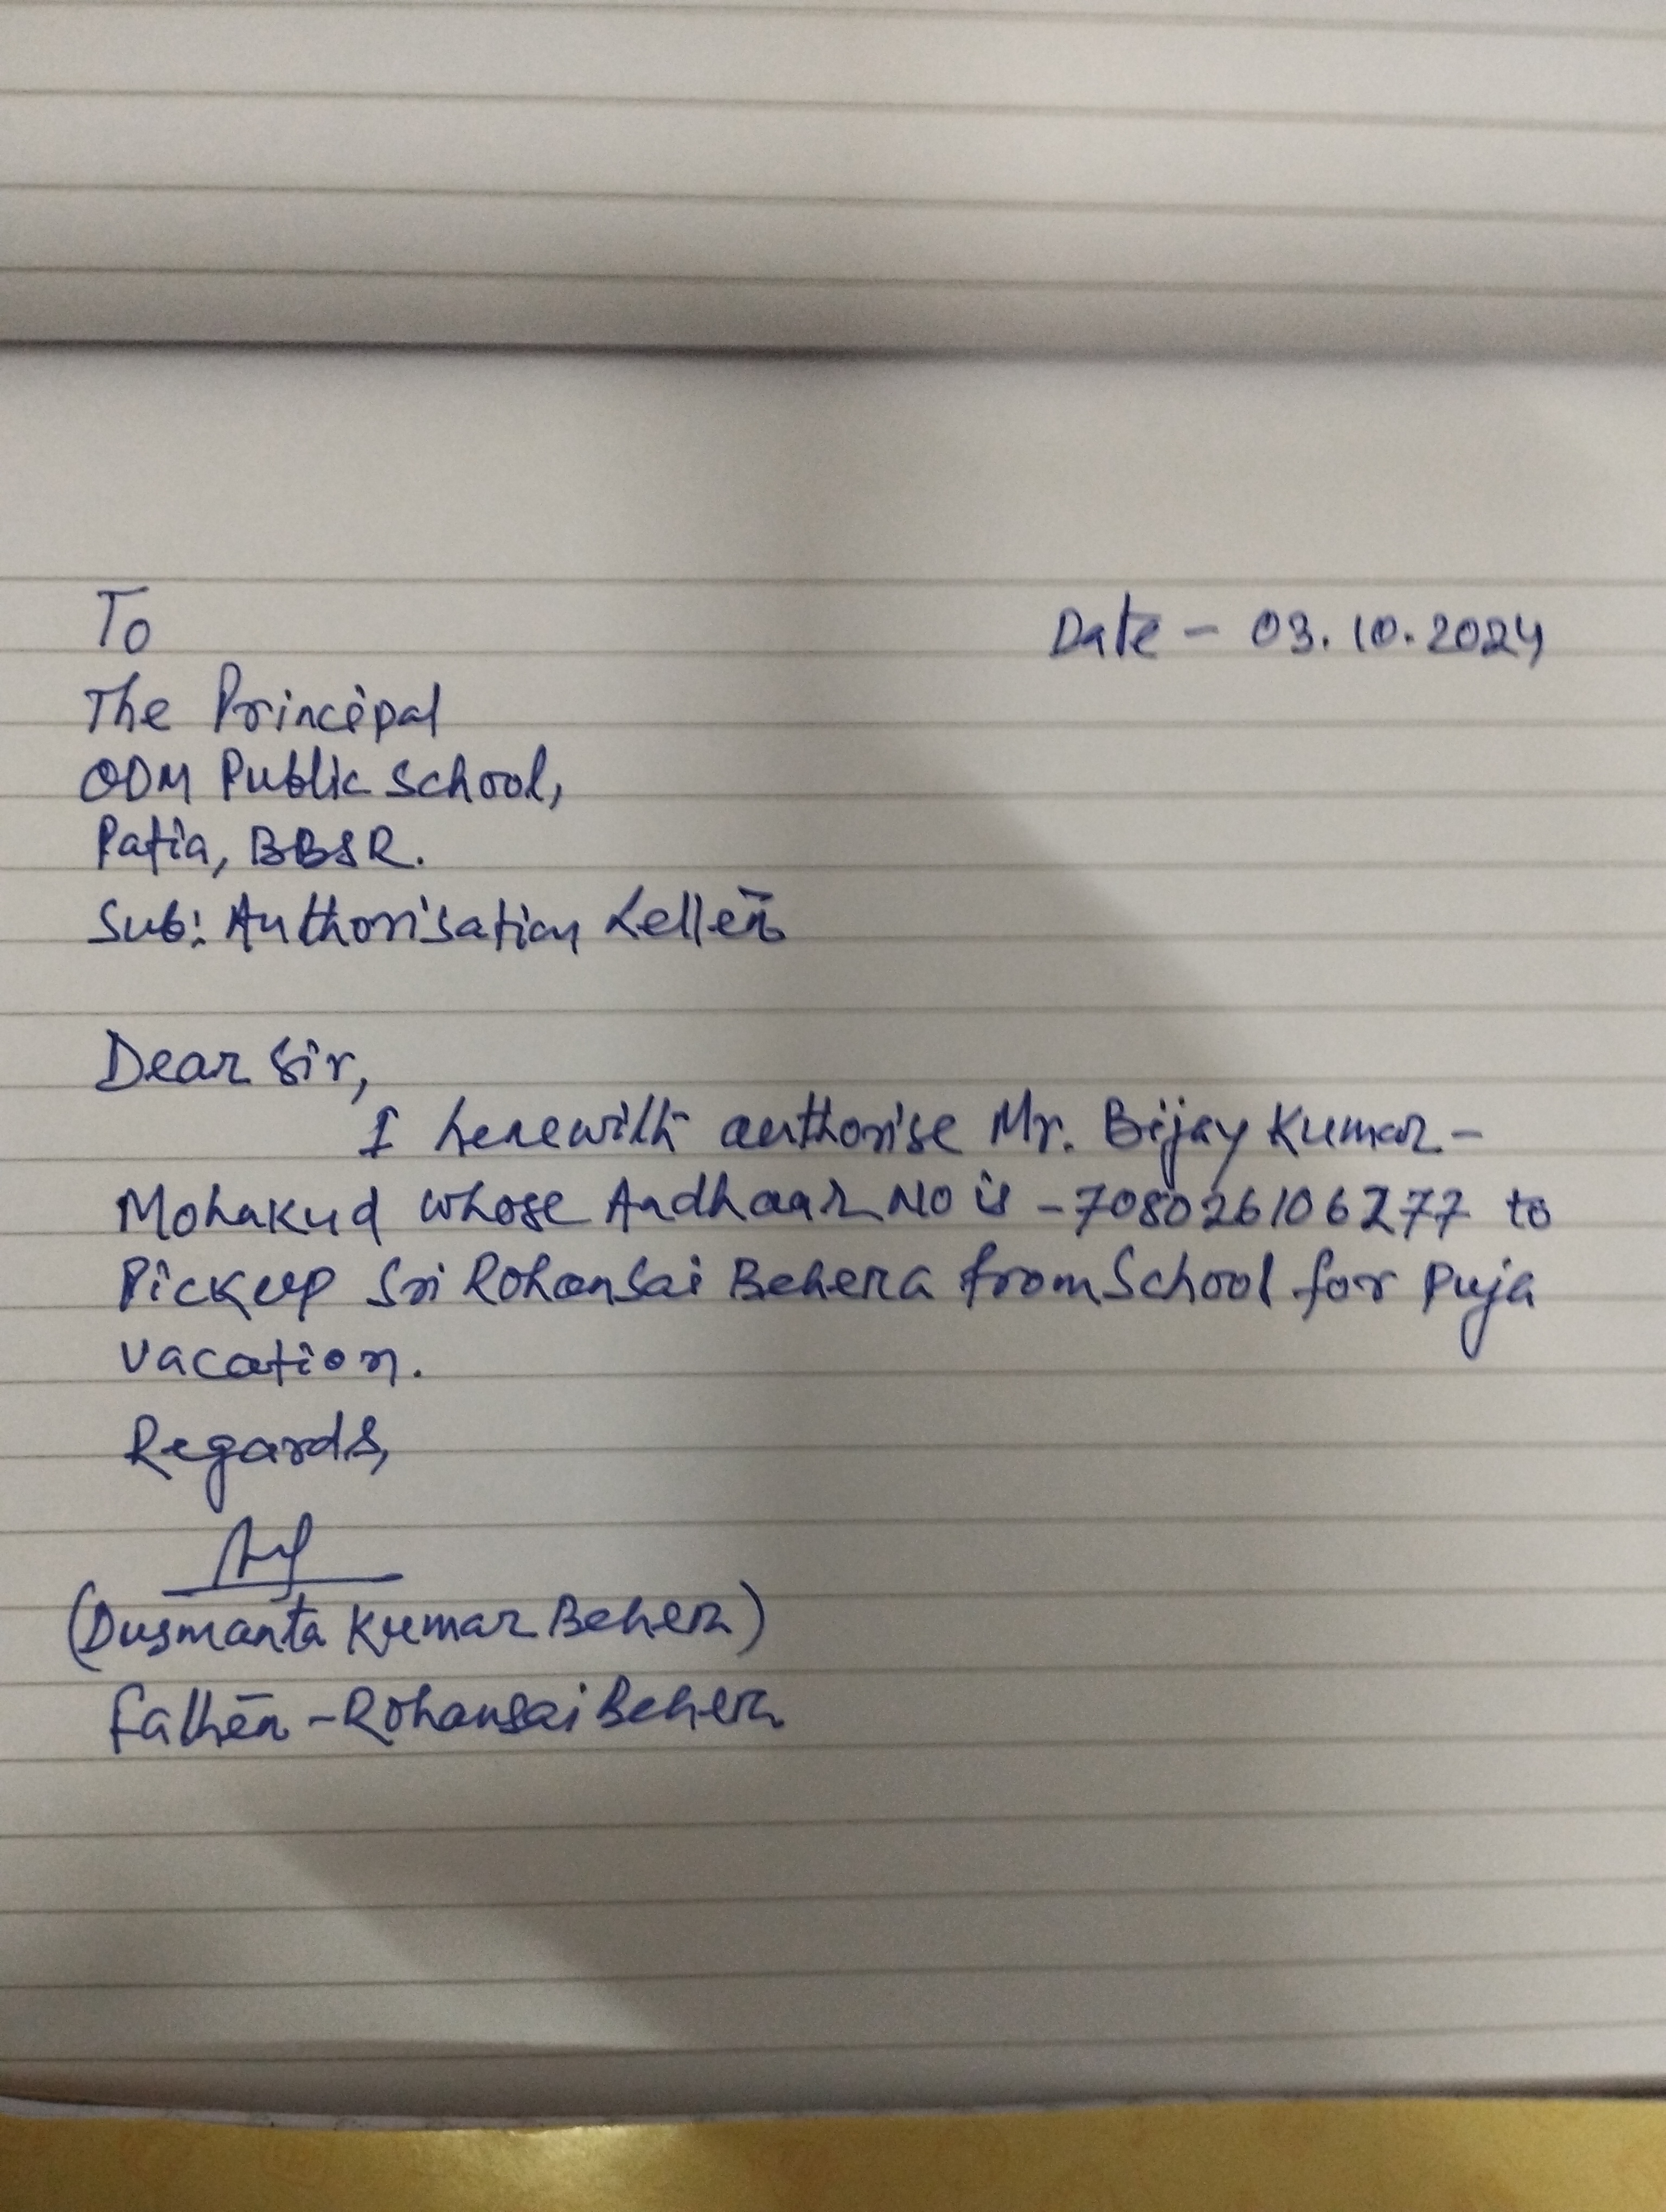 To
Date - 03.10.2024
The Principal
ODM Public School,
Patia, BBSR.
Sub: Authorisation Letter
Dear Sir,
I herewith authorise Mr. Bijay Kumar -
Mohakud whose Aadhaar No is - 708026106277 to
Pickup Sri Rohansai Behera from School for Puja
vacation.
Regards,
(Dusmanta Kumar Behera)
Father - Rohansai Behera